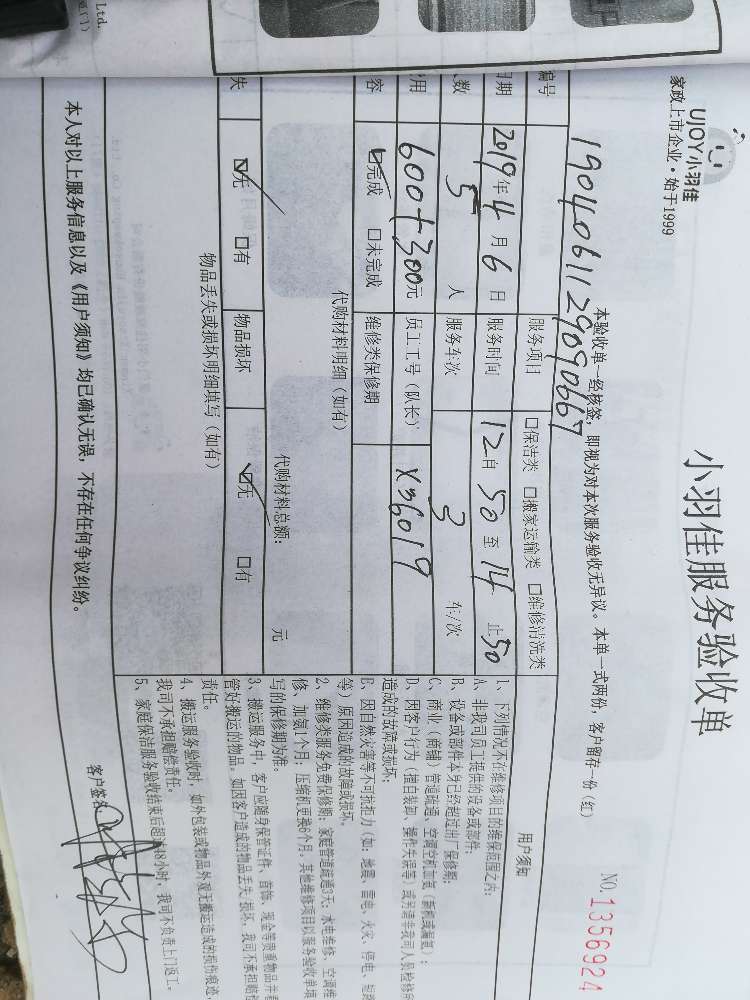 Ltd.
UJOY小羽佳
家政上市企业·始于1999
小羽佳服务验收单
NO. 1356924
本验收单一经核签，即视为对本次服务验收无异议。本单一式两份，客户留存一份（红）
编号 1904061129090667
服务项目 □保洁类 □搬家运输类 □维修清洗类
日期 2019年4月6日 服务时间 12自50至14止50
人数 5人 服务车次 3 车/次
费用 600+300元 员工工号（队长） X36019
内容 ☑完成 □未完成 维修类保修期
代购材料明细（如有）
代购材料总额： 元
失 ☑无 □有 物品损坏 ☑无 □有
物品丢失或损坏明细填写（如有）
本人对以上服务信息以及《用户须知》均已确认无误，不存在任何争议纠纷。
用户须知
1、下列情况不在维修项目的维保范围之内：
A、非我司员工提供的设备或部件；
B、设备或部件本身已经超过出厂保修期；
C、商业（商铺）管道疏通、空调空机加氨（新机或漏氨）；
D、因客户行为（擅自装卸、操作失误等）或另请非我司人员检修所
造成的故障或损坏；
E、因自然灾害等不可抗拒力（如：地震、雷电、火灾、停电、短路
等）原因造成的故障或损坏。
2、维修类服务免费保修期：家庭管道疏通3天；水电维修、空调维
修、加氨1个月；压缩机更换6个月。其他维修项目以服务验收单填
写的保修期为准。
3、搬运服务中，客户应随身保管证件、首饰、现金等贵重物品并看
管好搬运的物品。如因客户造成的物品丢失、损坏，我司不承担赔偿
责任。
4、搬运服务验收时，如外包装或物品外观无搬运造成的损伤痕迹，
我司不承担赔偿责任。
5、家庭保洁服务验收结束后超过48小时，我司不负责上门返工。
客户签名